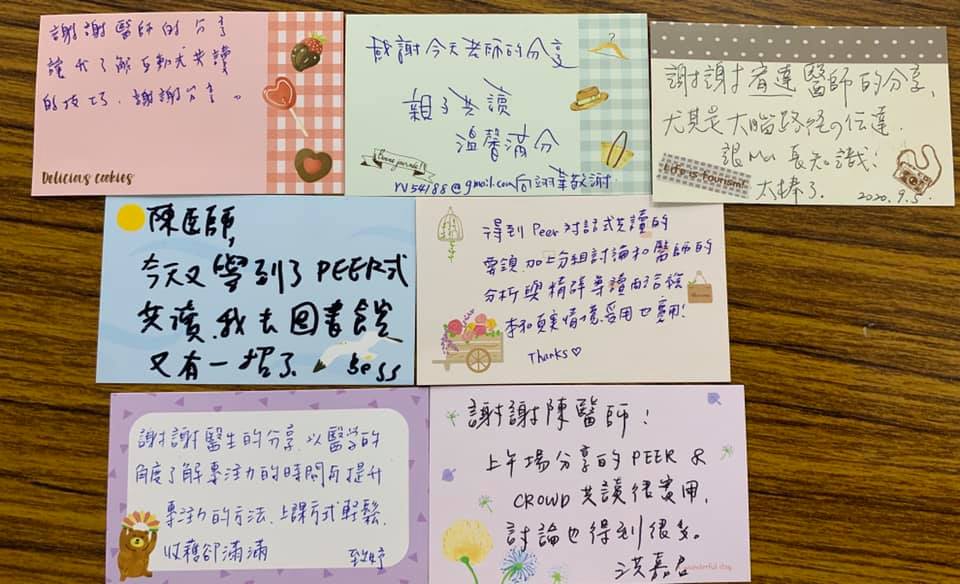 謝謝醫師的分享
讓我了解互動式共讀
的技巧．謝謝分享。
Delicious cookies
感謝今天老師的分享
親子共讀
溫馨滿分
Bonne journée!!
敬謝
謝謝宥達醫師的分享，
尤其是大腦路徑的傳達．
讓Me長知識！
太棒了．
Life is tourism!
2020. 9. 5.
陳醫師,
今天又學到了PEER式
共讀．我去圖書館
又有一招了．
Bess
得到Peer對話式共讀的
要領．加上分組討論和醫師的
分析與精闢導讀
受用也實用!
Thanks♡
謝謝醫生的分享．以醫學的
角度了解專注力的時間與提升
專注力的方法．上課方式輕鬆．
收穫卻滿滿
謝謝陳醫師！
上午場分享的PEER &
CROWD共讀很實用．
討論也得到很多。
洪嘉君
wonderful day